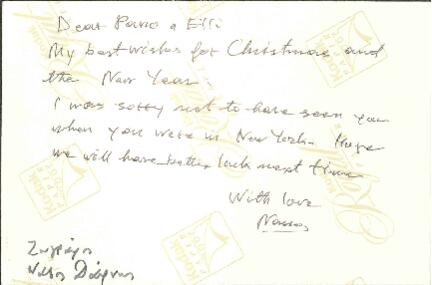 Dear Pavo & Elli
My best wishes for Christmas and
the New Year.
I was sorry not to have seen you
when you were in New York. Hope
we will have better luck next time
With love
Nanos
Ζωγράφος